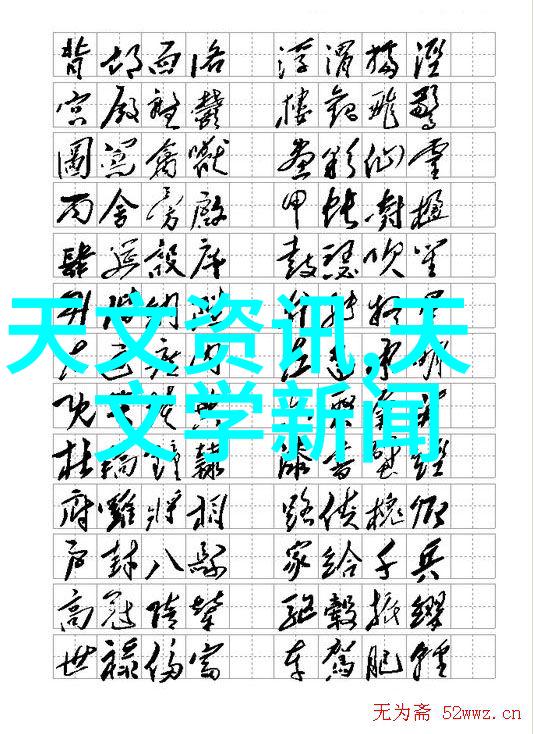 背邙面洛 浮渭據涇
宮殿盤鬱 樓觀飛驚
圖寫禽獸 畫彩仙靈
丙舍傍啟 甲帳對楹
肆筵設席 鼓瑟吹笙
天文资讯,天
文学新闻
杜稿鍾隸
府羅將相 路俠槐卿
戶封八縣 家給千兵
高冠陪輦 驅轂振纓
世祿侈富 車駕肥輕
无为斋 52wwz.cn